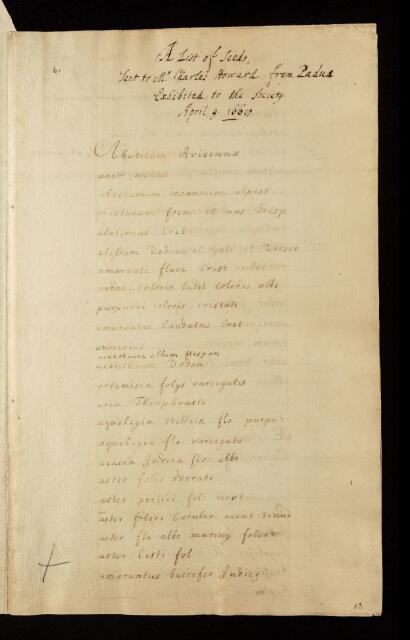 6.
A List of Seeds,
Sent to Mr Charles Howard from Padua
Exhibited to the Society
April 9. 1669
Abutilum Avicennæ
abrotanum incanum
abrotanum fœm et mas
alaternus Cret
alissum Dodon et Gale et Diosco
amaranti flavi Crist
lutei coloris albi
purpurei coloris cristati
amarantus Caudatus Cret
acanthium album hispan
acanthium Dodon
artemisia folys variegatis
Theophrasti
aquilegia stellata flo purpu:
aquilegia flo variegato
acacia Indica flo albo
aster folio odorato
aster persici fol mont
aster flore Cæruleo mont
aster flo albo
aster Cisti fol
amarantus baccifer Indicq
13